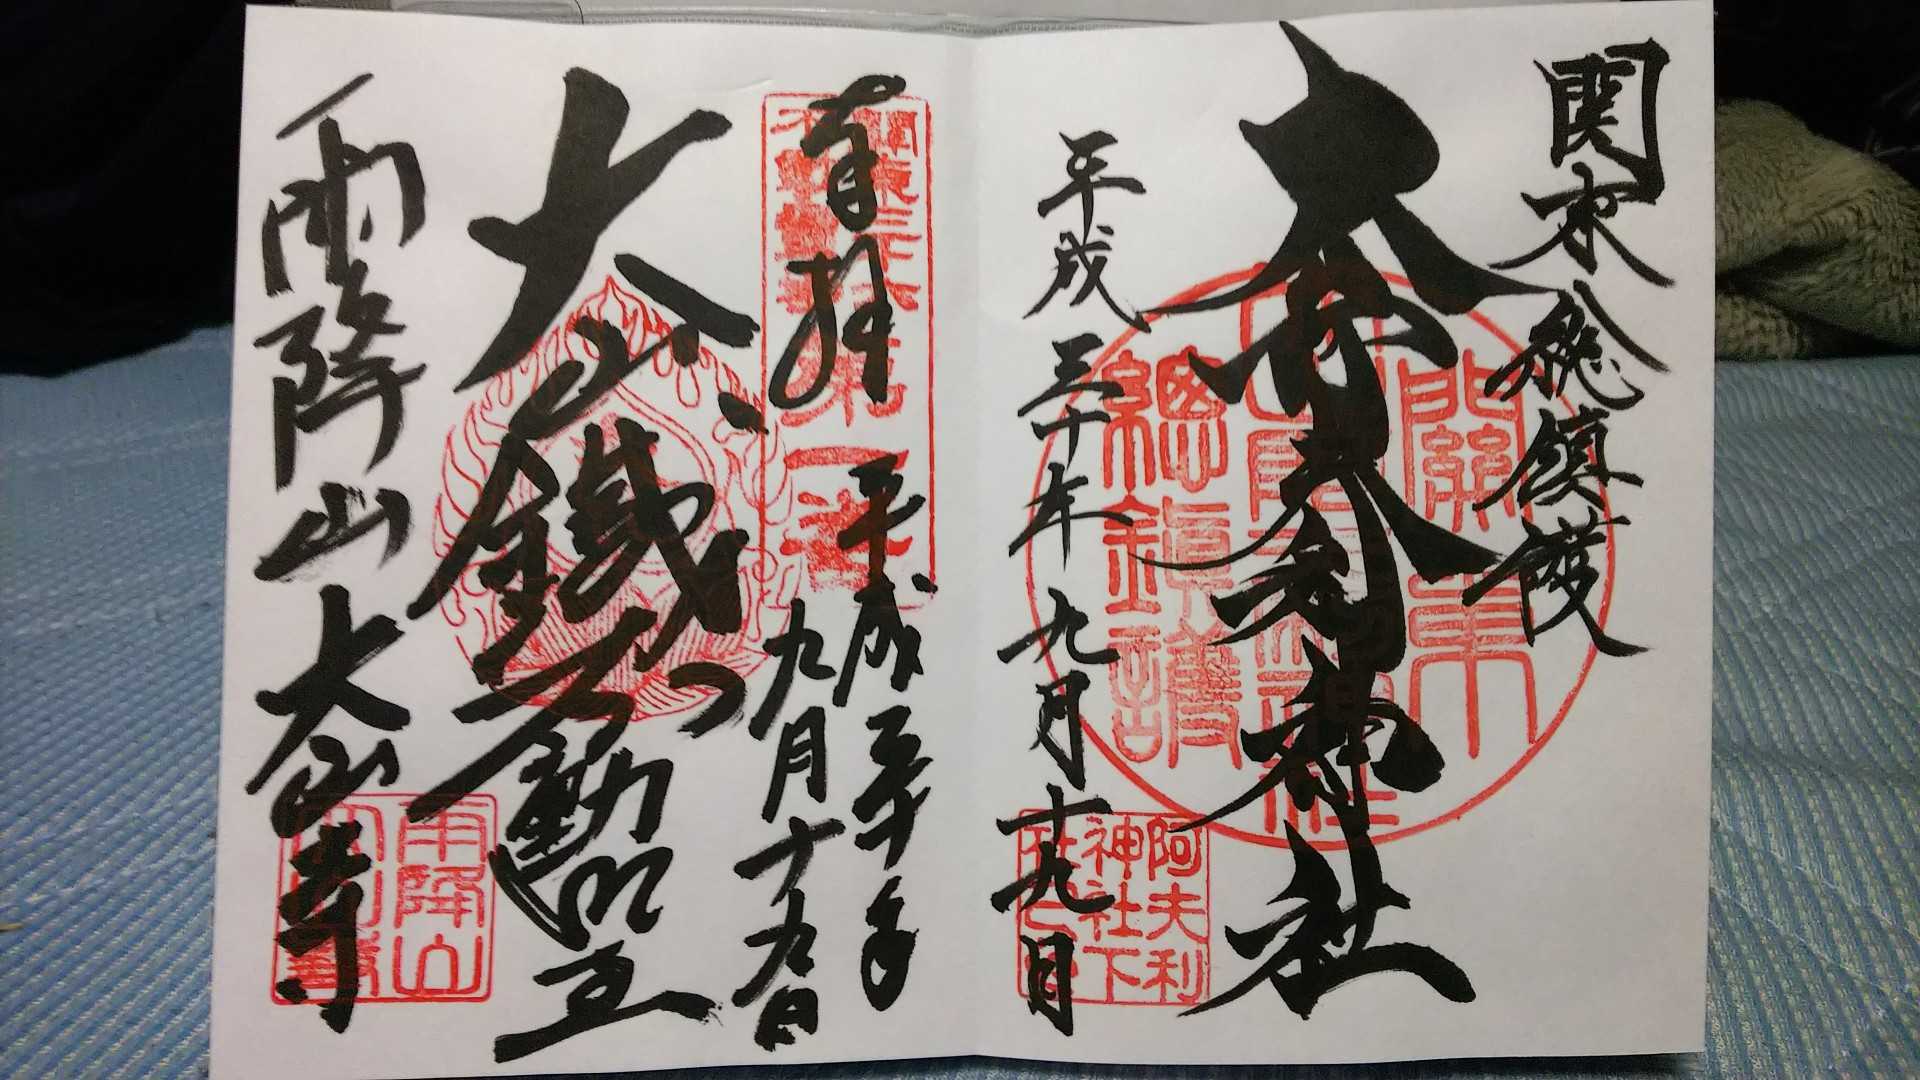 関東総鎮護
大山阿夫利神社
平成三十年九月十九日
關東
總鎮護
阿夫利
神社下
奉拝
平成三十年
九月十九日
關東三十六
第一番
大山鐵不動明王
雨降山大山寺
雨降山